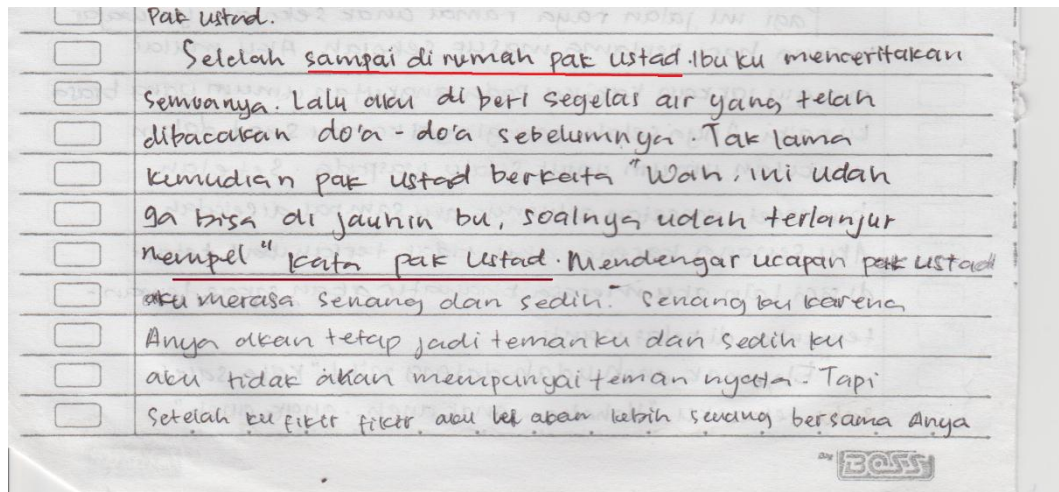 Pak ustad.
Setelah sampai di rumah pak ustad. Ibu ku menceritakan
semuanya. Lalu aku di beri segelas air yang telah
dibacakan do'a - do'a sebelumnya Tak lama
kemudian pak ustad berkata "Wah, ini udah
ga bisa di jauhin bu, soalnya udah terlanjur
nempel" kata pak ustad. Mendengar ucapan pak ustad
aku merasa senang dan sedih. Senang ku karena
Anya akan tetap jadi temanku dan sedih ku
aku tidak akan mempunyai teman nyata. Tapi
setelah ku fikir fikir aku akan lebih senang bersama Anya
BOSS